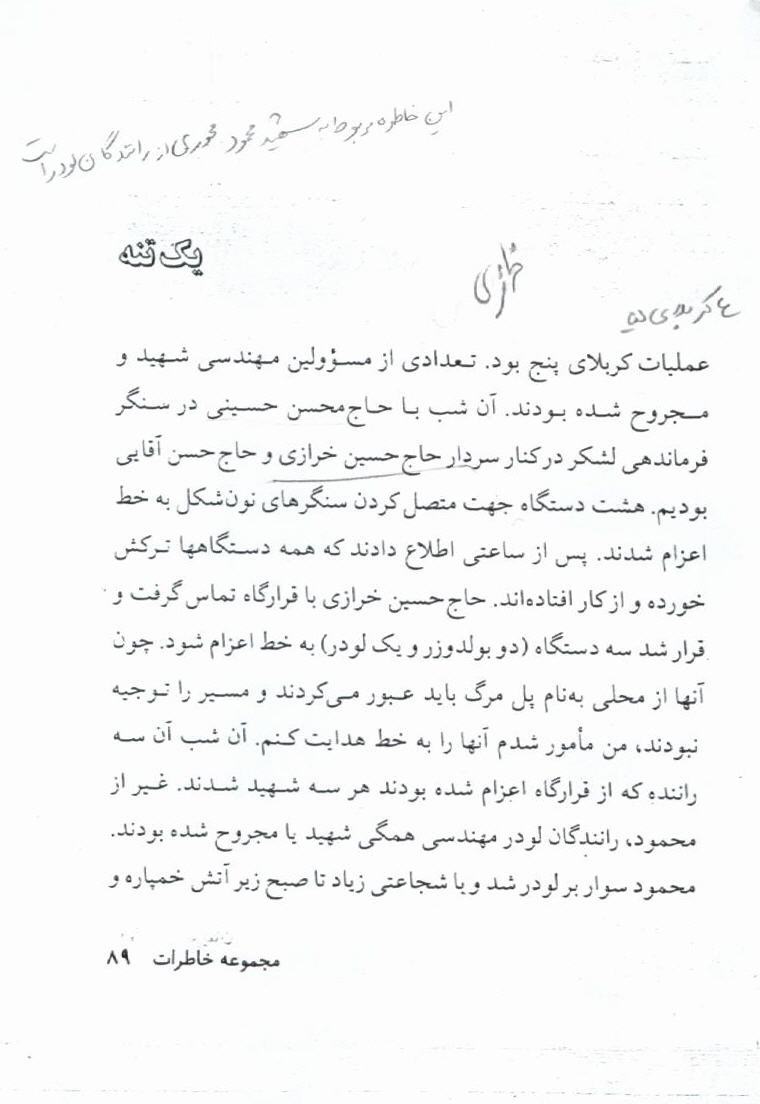 این خاطره مربوط به شهید محمود محوری از رانندگان لودر است
یک تنه
خرازی
ع کربلای
عملیات کربلای پنج بود. تعدادی از مسؤولین مهندسی شهید و
مجروح شده بودند. آن شب با حاج‌محسن حسینی در سنگر
فرماندهی لشکر درکنار سردار حاج حسین خرازی و حاج حسن آقایی
بودیم. هشت دستگاه جهت متصل کردن سنگرهای نون‌شکل به خط
اعزام شدند. پس از ساعتی اطلاع دادند که همه دستگاهها ترکش
خورده و از کار افتاده‌اند. حاج حسین خرازی با قرارگاه تماس گرفت و
قرار شد سه دستگاه (دو بولدوزر و یک لودر) به خط اعزام شود. چون
آنها از محلی به‌نام پل مرگ باید عبور می‌کردند و مسیر را توجیه
نبودند، من مأمور شدم آنها را به خط هدایت کنم. آن شب آن سه
راننده که از قرارگاه اعزام شده بودند هر سه شهید شدند. غیر از
محمود، رانندگان لودر مهندسی همگی شهید یا مجروح شده بودند.
محمود سوار بر لودر شد و با شجاعتی زیاد تا صبح زیر آتش خمپاره و
مجموعه خاطرات ۸۹